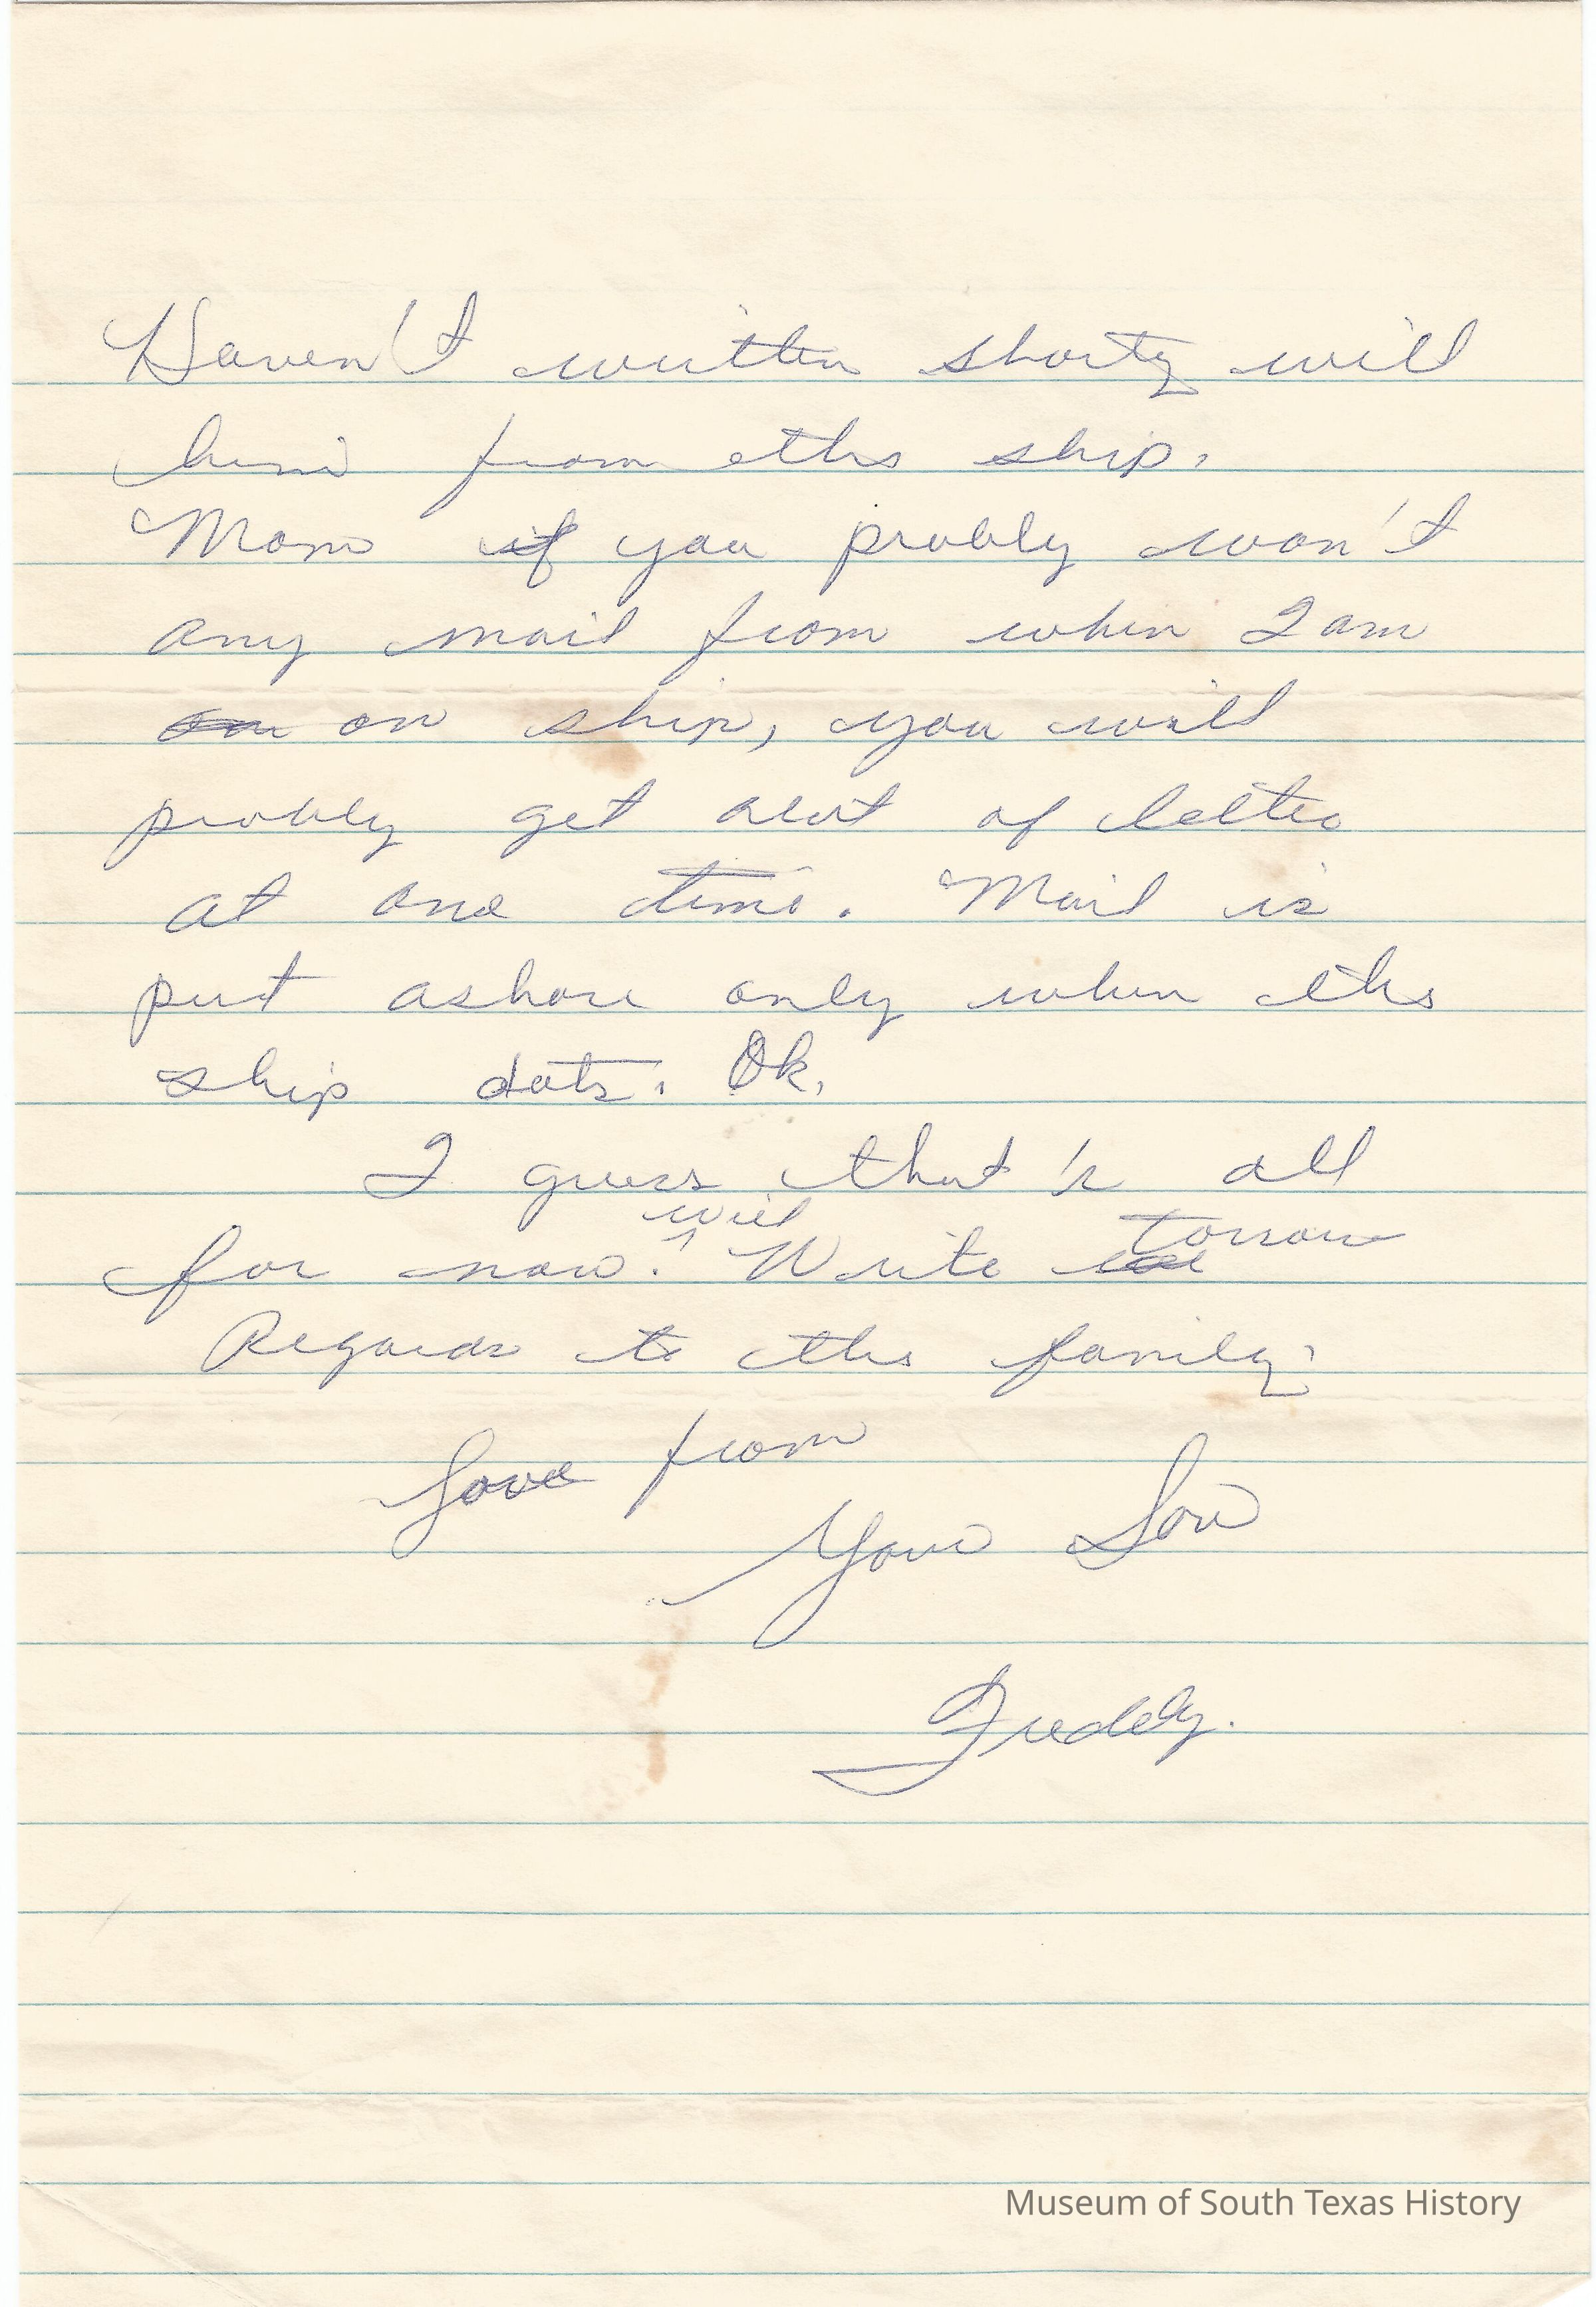 Haven't written shorty will
him from the ship.
Mom if you probly won't
any mail from when I am
on ship, you will
probly get alot of letters
at one time. Mail is
put ashore only when the
ship dots. Ok.
I guess that's all
for now. will Write torrow
Regards to the family.
Love from
Your Son
Freddy.
Museum of South Texas History